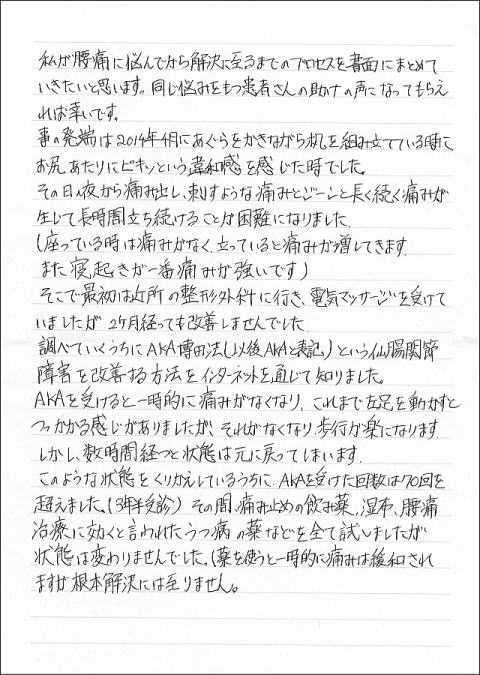 私が腰痛に悩んでから解決に至るまでのプロセスを書面にまとめて
いきたいと思います。同じ悩みをもつ患者さんの助けの声になってもらえ
れば幸いです。
事の発端は2014年4月にあぐらをかきながら机を組み立てている時に
お尻あたりにピキンという違和感を感じた時でした。
その日の夜から痛み出し、刺すような痛みとジーンと長く続く痛みが
生じて長時間立ち続けることが困難になりました.
(座っている時は痛みがなく、立っていると痛みが増してきます.
また寝起きが一番痛みが強いです)
そこで最初は近所の整形外科に行き、電気マッサージを受けて
いましたが 2ヶ月経っても改善しませんでした.
調べていくうちにAKA博田法(以後AKAと表記)という仙腸関節
障害を改善する方法をインターネットを通じて知りました。
AKAを受けると一時的に痛みがなくなり、これまで左足を動かすと
つっかかる感じがありましたが、それがなくなり歩行が楽になります.
しかし、数時間経つと状態は元に戻ってしまいます.
このような状態をくりかえしているうちに、AKAを受けた回数は70回を
超えました。(3年半受診) その間、痛み止めの飲み薬、湿布、腰痛
治療に効くと言われたうつ病の薬などを全て試しましたが
状態は変わりませんでした。(薬を使うと一時的に痛みは緩和され
ますが根本解決には至りません。